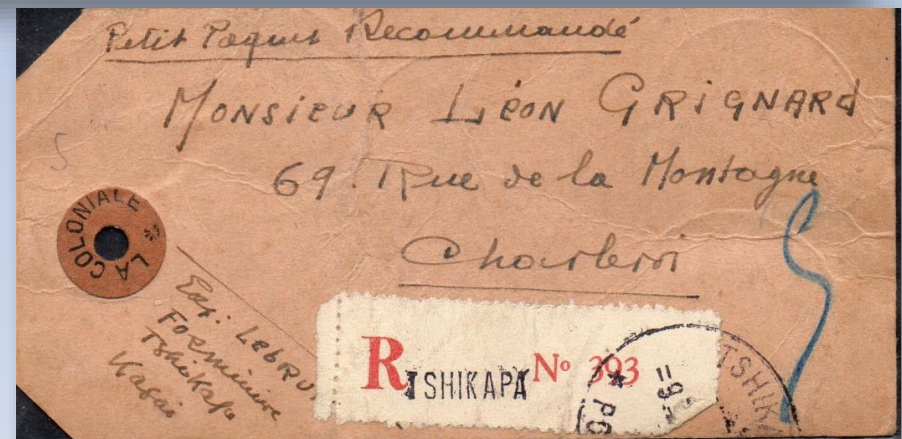 Petit Paquet Recommandé
MONSIEUR LÉON GRIGNARD
69 Rue de la Montagne
Charleroi
LA COLONIALE *
Exp: LEBRU
Forminière
Tshikapa
Kasai
R TSHIKAPA No 393
TSHIKA